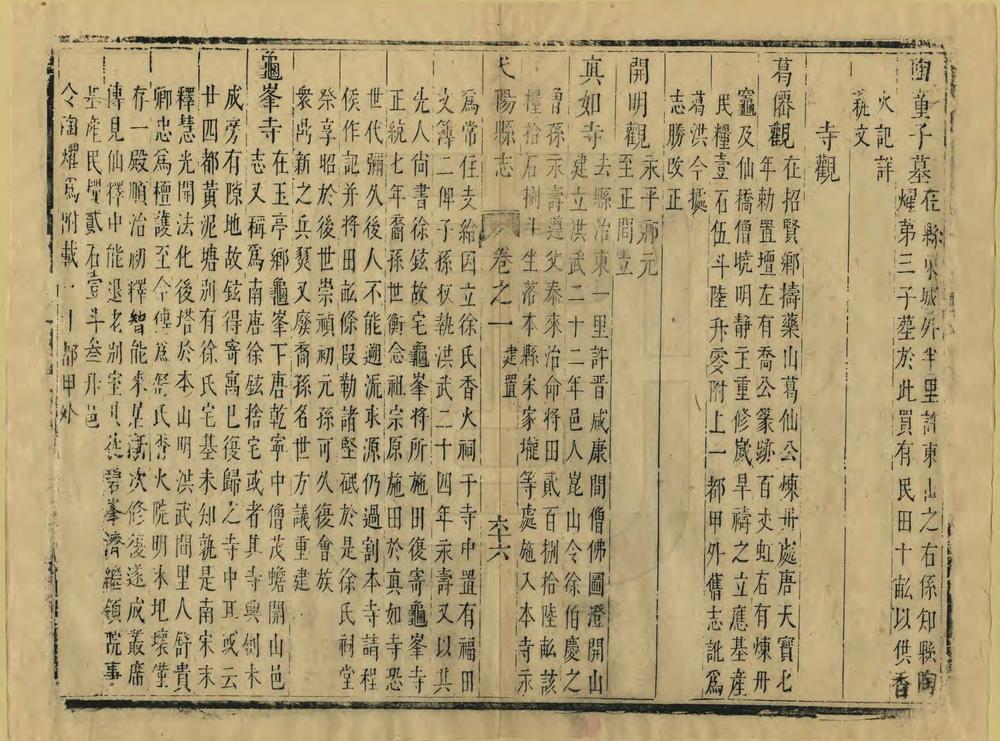 陶童子墓在縣東城外半里許東山之右係知縣陶
燿第三子塟於此買有民田十畝以供香
火記詳
藝文
寺觀
葛僊觀在招賢鄉擣藥山葛仙公煉丹處唐天寶七
年勅置壇左有喬公篆跡百丈虹右有煉丹
竈及仙橋僧境明靜主重修歲旱禱之立應基產
民糧壹石伍斗陸升零附上一都甲外舊志訛爲
葛洪今據
志勝改正
開明觀永平鄉元
至正間立
真如寺去縣治東一里許晋咸康間僧佛圖澄開山
建立洪武二十二年邑人崑山令徐伯慶之
曾孫永壽遵父泰來治命將田貳百捌拾陸畝該
糧拾石捌斗坐落本縣宋家壠等處施入本寺永
弋陽縣志 卷之一 建置 六十六
爲常住支給因立徐氏香火祠于寺中置有福田
文簿二俾子孫枝執洪武二十四年永壽又以其
先人尚書徐鉉故宅龜峯將所施田復寄龜峯寺
正統七年裔孫世衡念祖宗原施田於真如寺恐
世代彌久後人不能遡派求源仍過割本寺請程
侯作記并將田畝條段勒諸堅砥於是徐氏祠堂
祭享昭於後世崇禎初元孫可久復會族
衆鼎新之兵燹又廢裔孫名世方議重建
龜峯寺在玉亭鄉龜峯下唐乾寧中僧茂蟾開山邑
志又稱爲南唐徐鉉捨宅或者其寺興創未
成旁有隙地故鉉得寄寓巳復歸之寺中耳或云
廿四都黃泥塘別有徐氏宅基未知孰是南宋末
釋慧光開法化後塔於本山明洪武間里人舒貴
卿忠爲檀護至今傳爲舒氏香火院明末地壞僅
存一殿順治初釋智能來居漸次修復遂成叢席
傳見仙釋中能退老別室其徒碧峯濟繼領院事
基產民糧貳石壹斗叁升邑
令陶燿爲附載一十都甲外